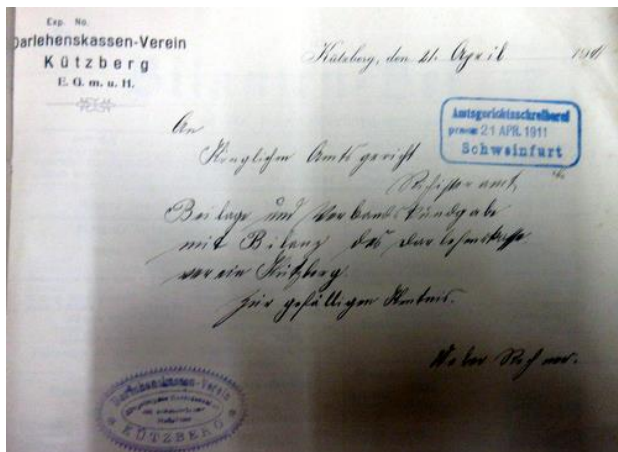 Exp. No.
Darlehenskassen-Verein
Kützberg
E. G. m. u. H.
Kützberg, den 21. April 1911
Amtsgerichtsschreiberei
präs. 21 APR. 1911
Schweinfurt
An
Königlichen Amtsgericht
Registeramt
Beilage und Verbandskundgabe
mit Bilanz des Darlehenskasse
verein Kützberg.
zur gefälligen Kentnis.
Weber Rechner.
Darlehenskassen-Verein
KÜTZBERG